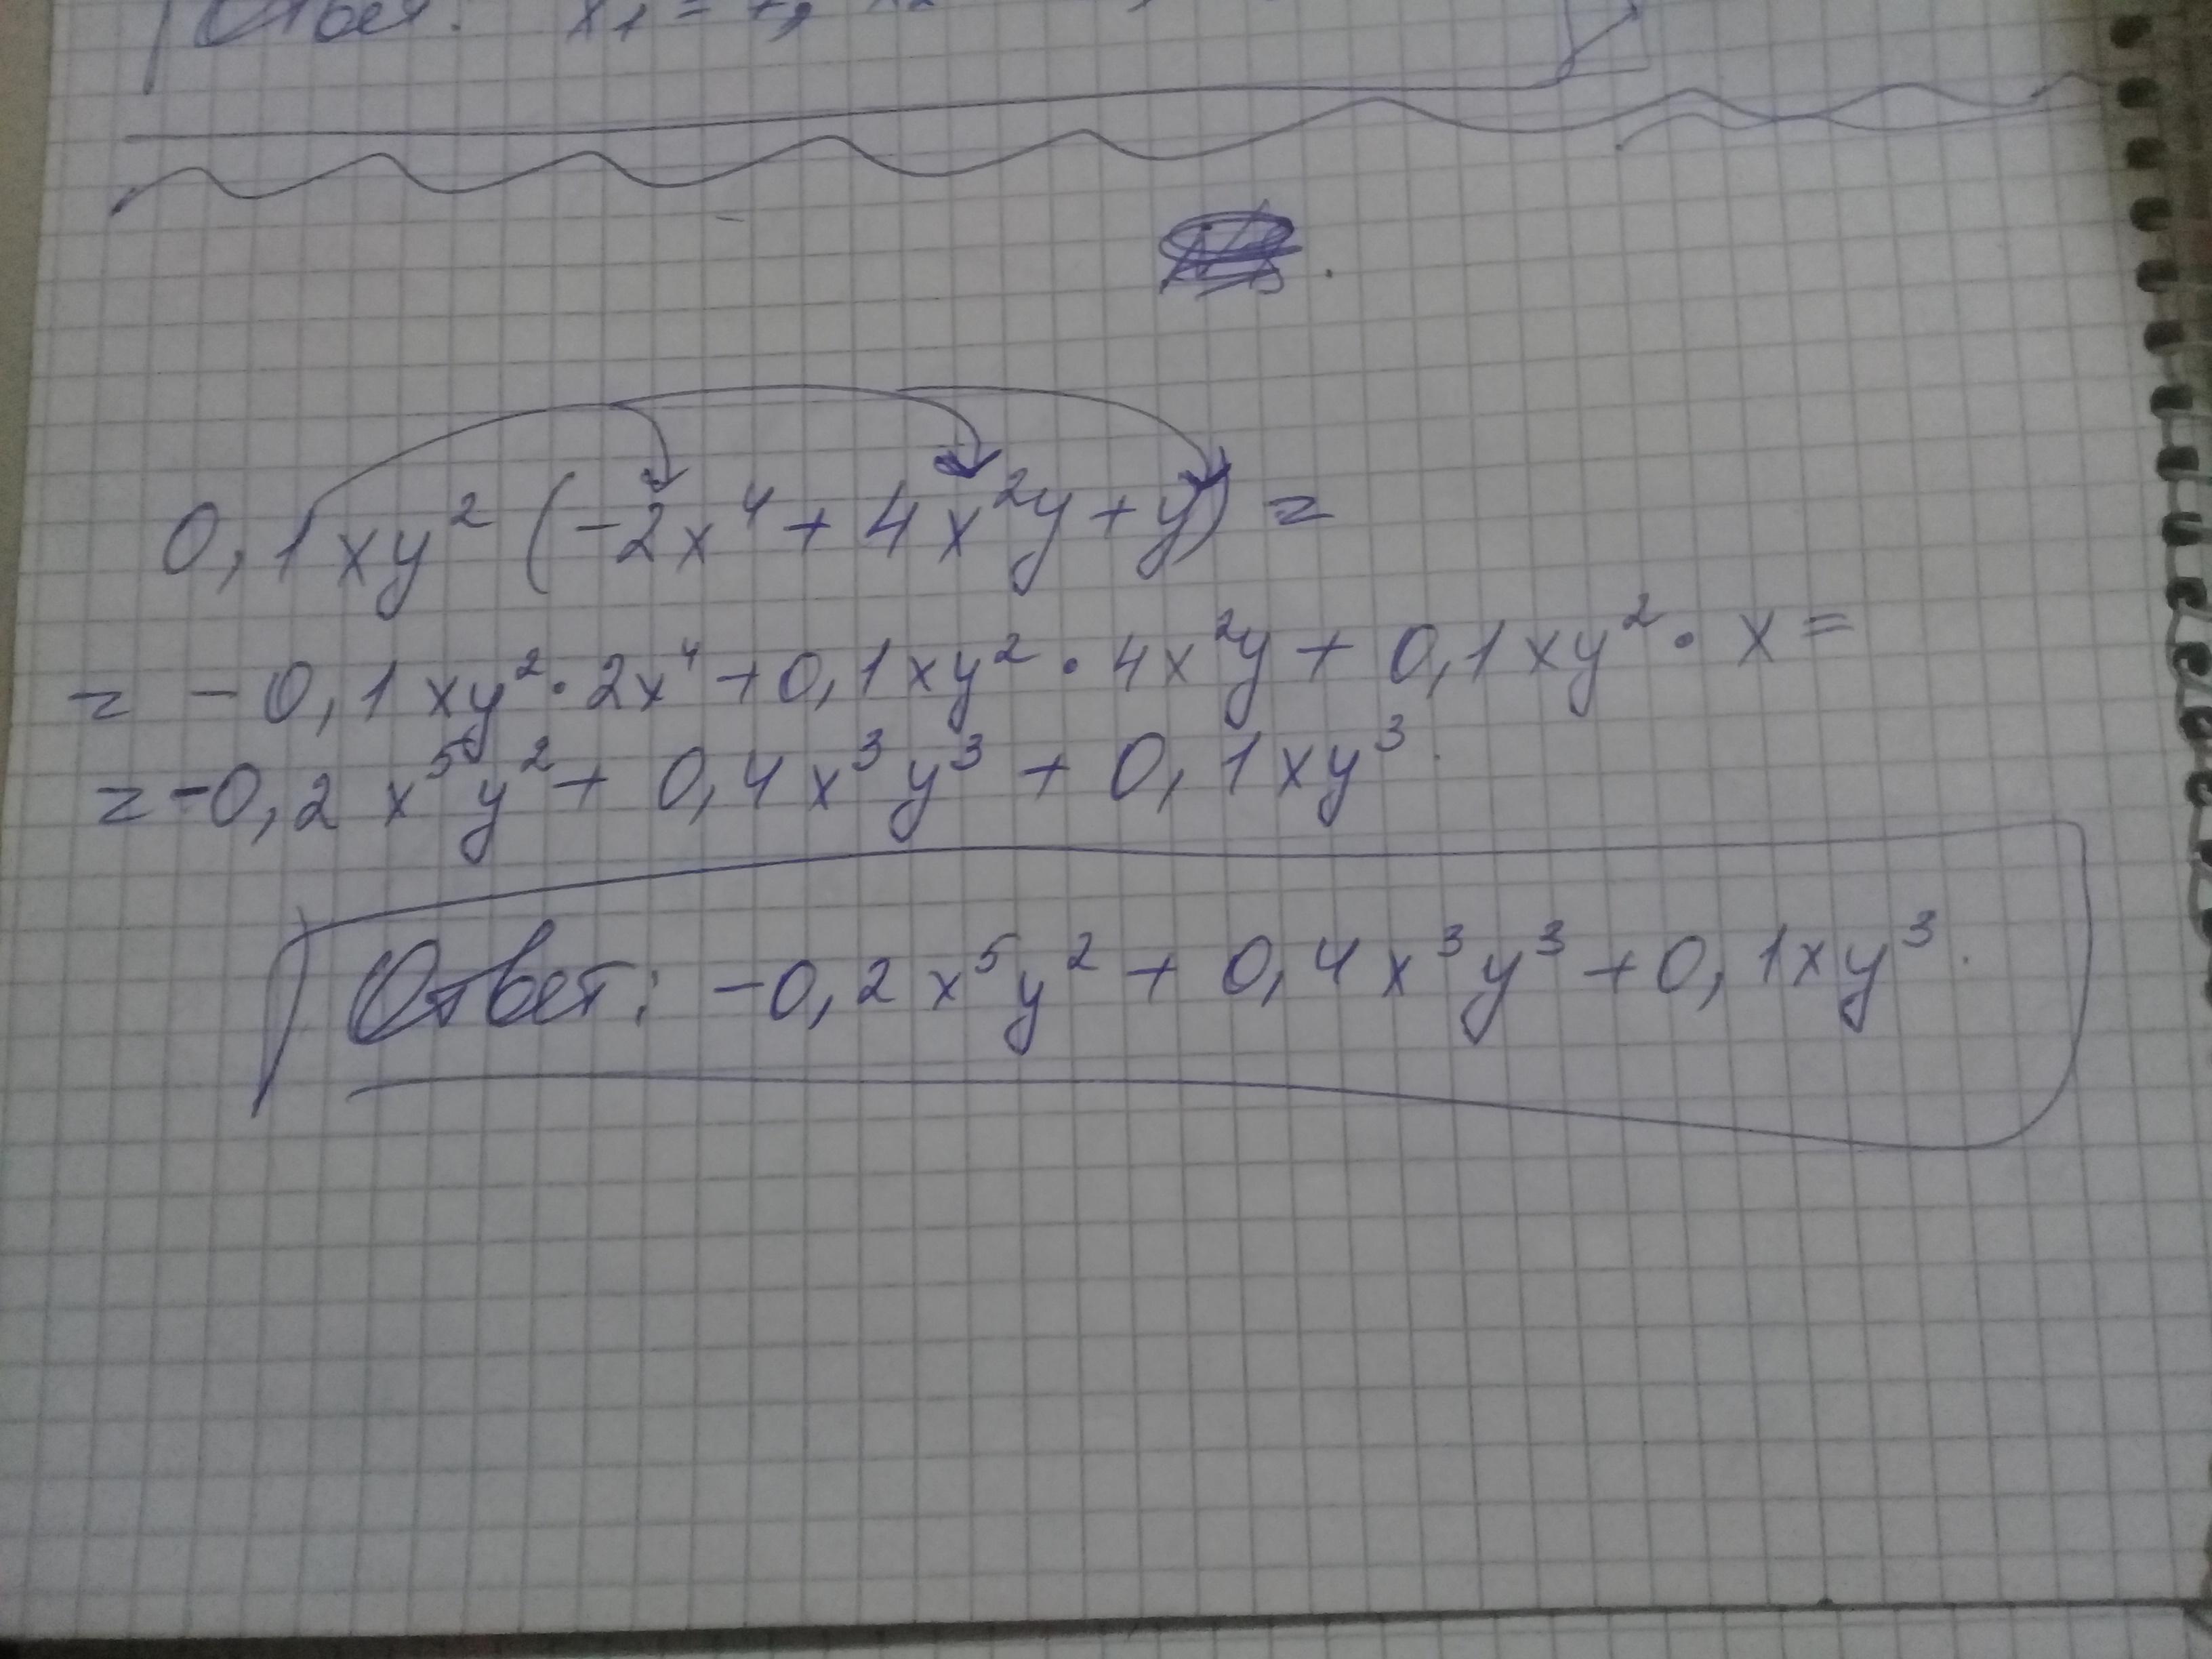 Ответ: x₁ =
0,1xy²(-2x⁴ + 4x²y + y) =
= -0,1xy²·2x⁴ + 0,1xy²·4x²y + 0,1xy²·x =
= -0,2x⁵y² + 0,4x³y³ + 0,1xy³.
Ответ: -0,2x⁵y² + 0,4x³y³ + 0,1xy³.